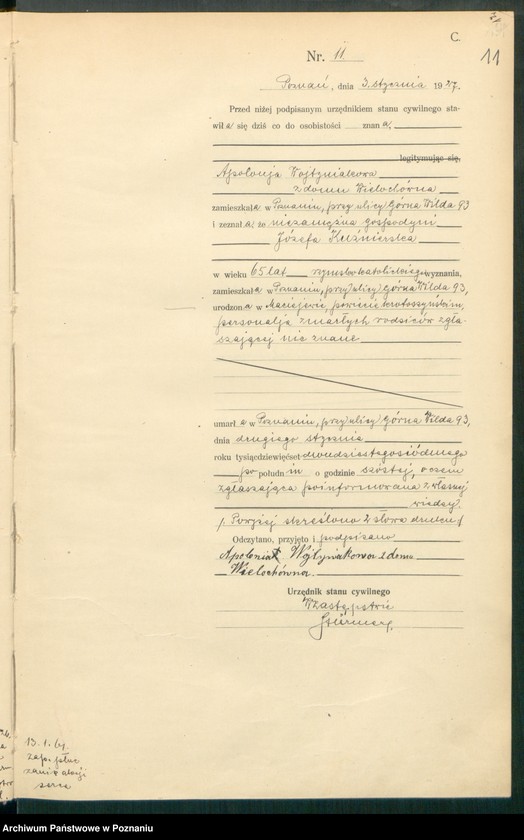 C.
11
Nr. 11
Poznań, dnia 3. stycznia 1927.
Przed niżej podpisanym urzędnikiem stanu cywilnego sta-
wiła się dziś co do osobistości znana,
legitymując się,
Apolonja Wojtyniakowa
z domu Wielochówna
zamieszkała w Poznaniu, przy ulicy Górna Wilda 93
i zeznała, że niezamężna gospodyni
Józefa Kuźnierska
w wieku 65 lat rzymsko-katolickiego wyznania,
zamieszkała w Poznaniu, przy ulicy Górna Wilda 93,
urodzona w Maciejewie, powiecie krotoszyńskim,
personalja zmarłych rodziców zgła-
szającej nie znane
umarła w Poznaniu, przy ulicy Górna Wilda 93,
dnia drugiego stycznia
roku tysiącdziewięćset dwudziestegosiódmego
po południu o godzinie szóstej, o czem
zgłaszająca poinformowana z własnej
wiedzy.
/. Powyżej skreślono 2 słowa drukem /
Odczytano, przyjęto i podpisano
Apolonia Wojtyniakowa z domu
Wielochówna
Urzędnik stanu cywilnego
W zastępstwie
13.1.
zap. płuc
serca
Archiwum Państwowe w Poznaniu